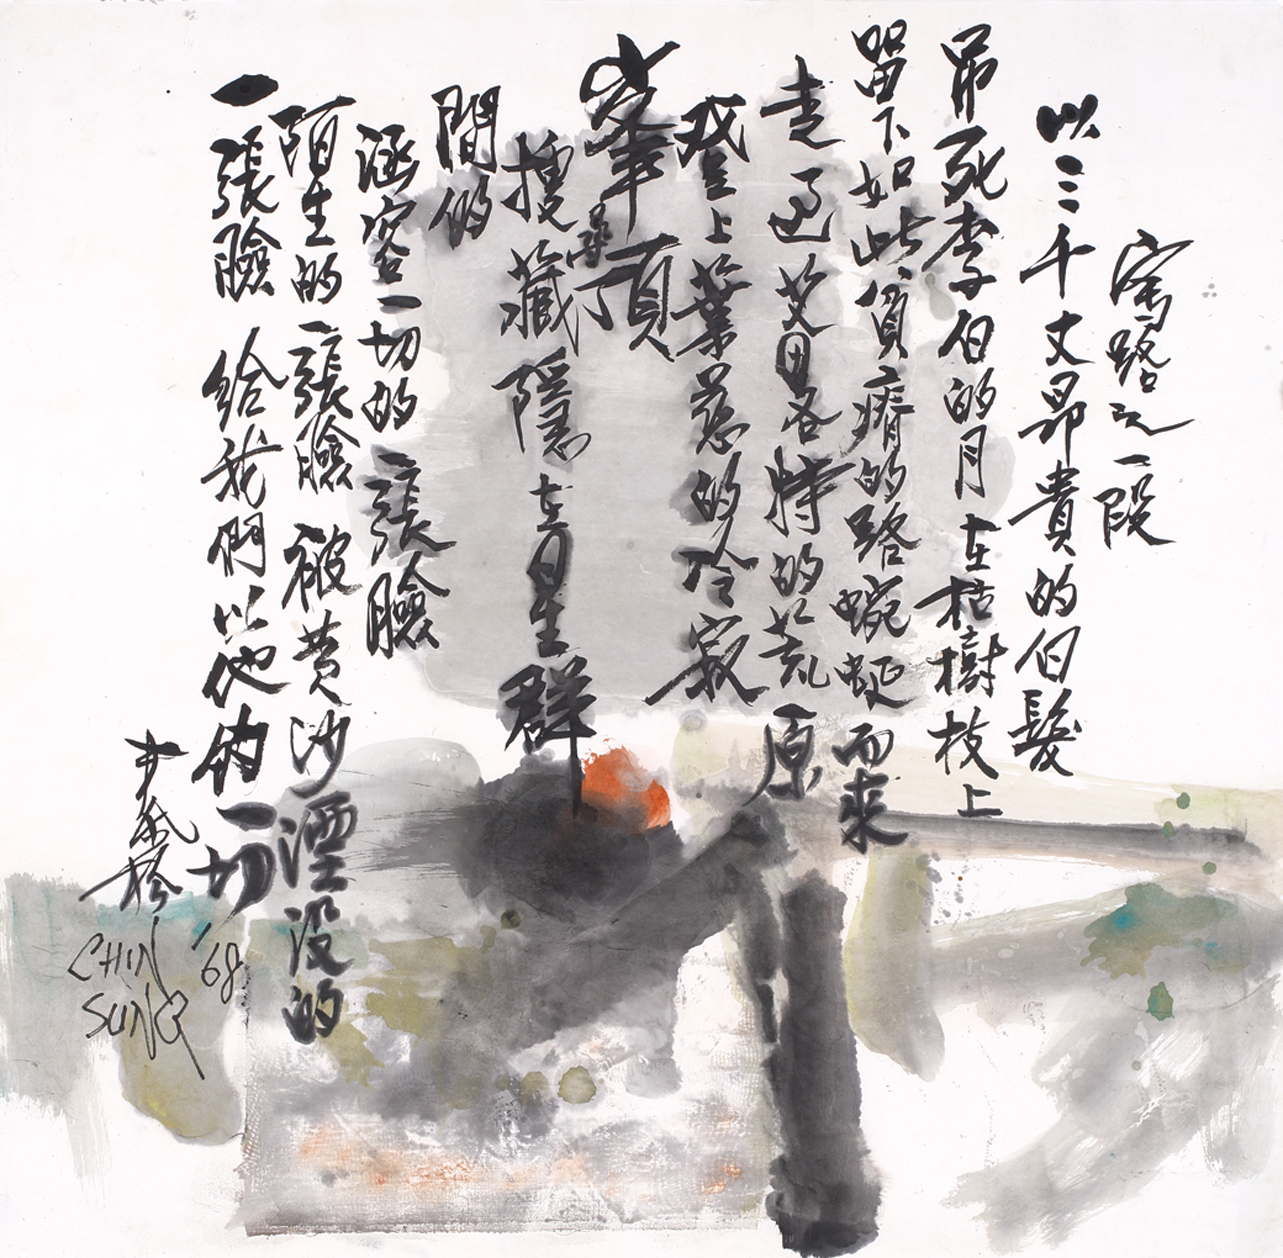 路之一段
以三千丈昂貴的白髮
吊死李白的月在枯樹枝上
留下如此貧瘠的路蜿蜒而來
走過艾略特的荒原
登上葉慈的冷寂
峯頂
尋
搜藏隱在星群
間的
涵容一切的一張臉
陌生的一張臉 被黃沙湮沒的
一張臉 給我們以他的一切
松
'68
CHIN
SUNG